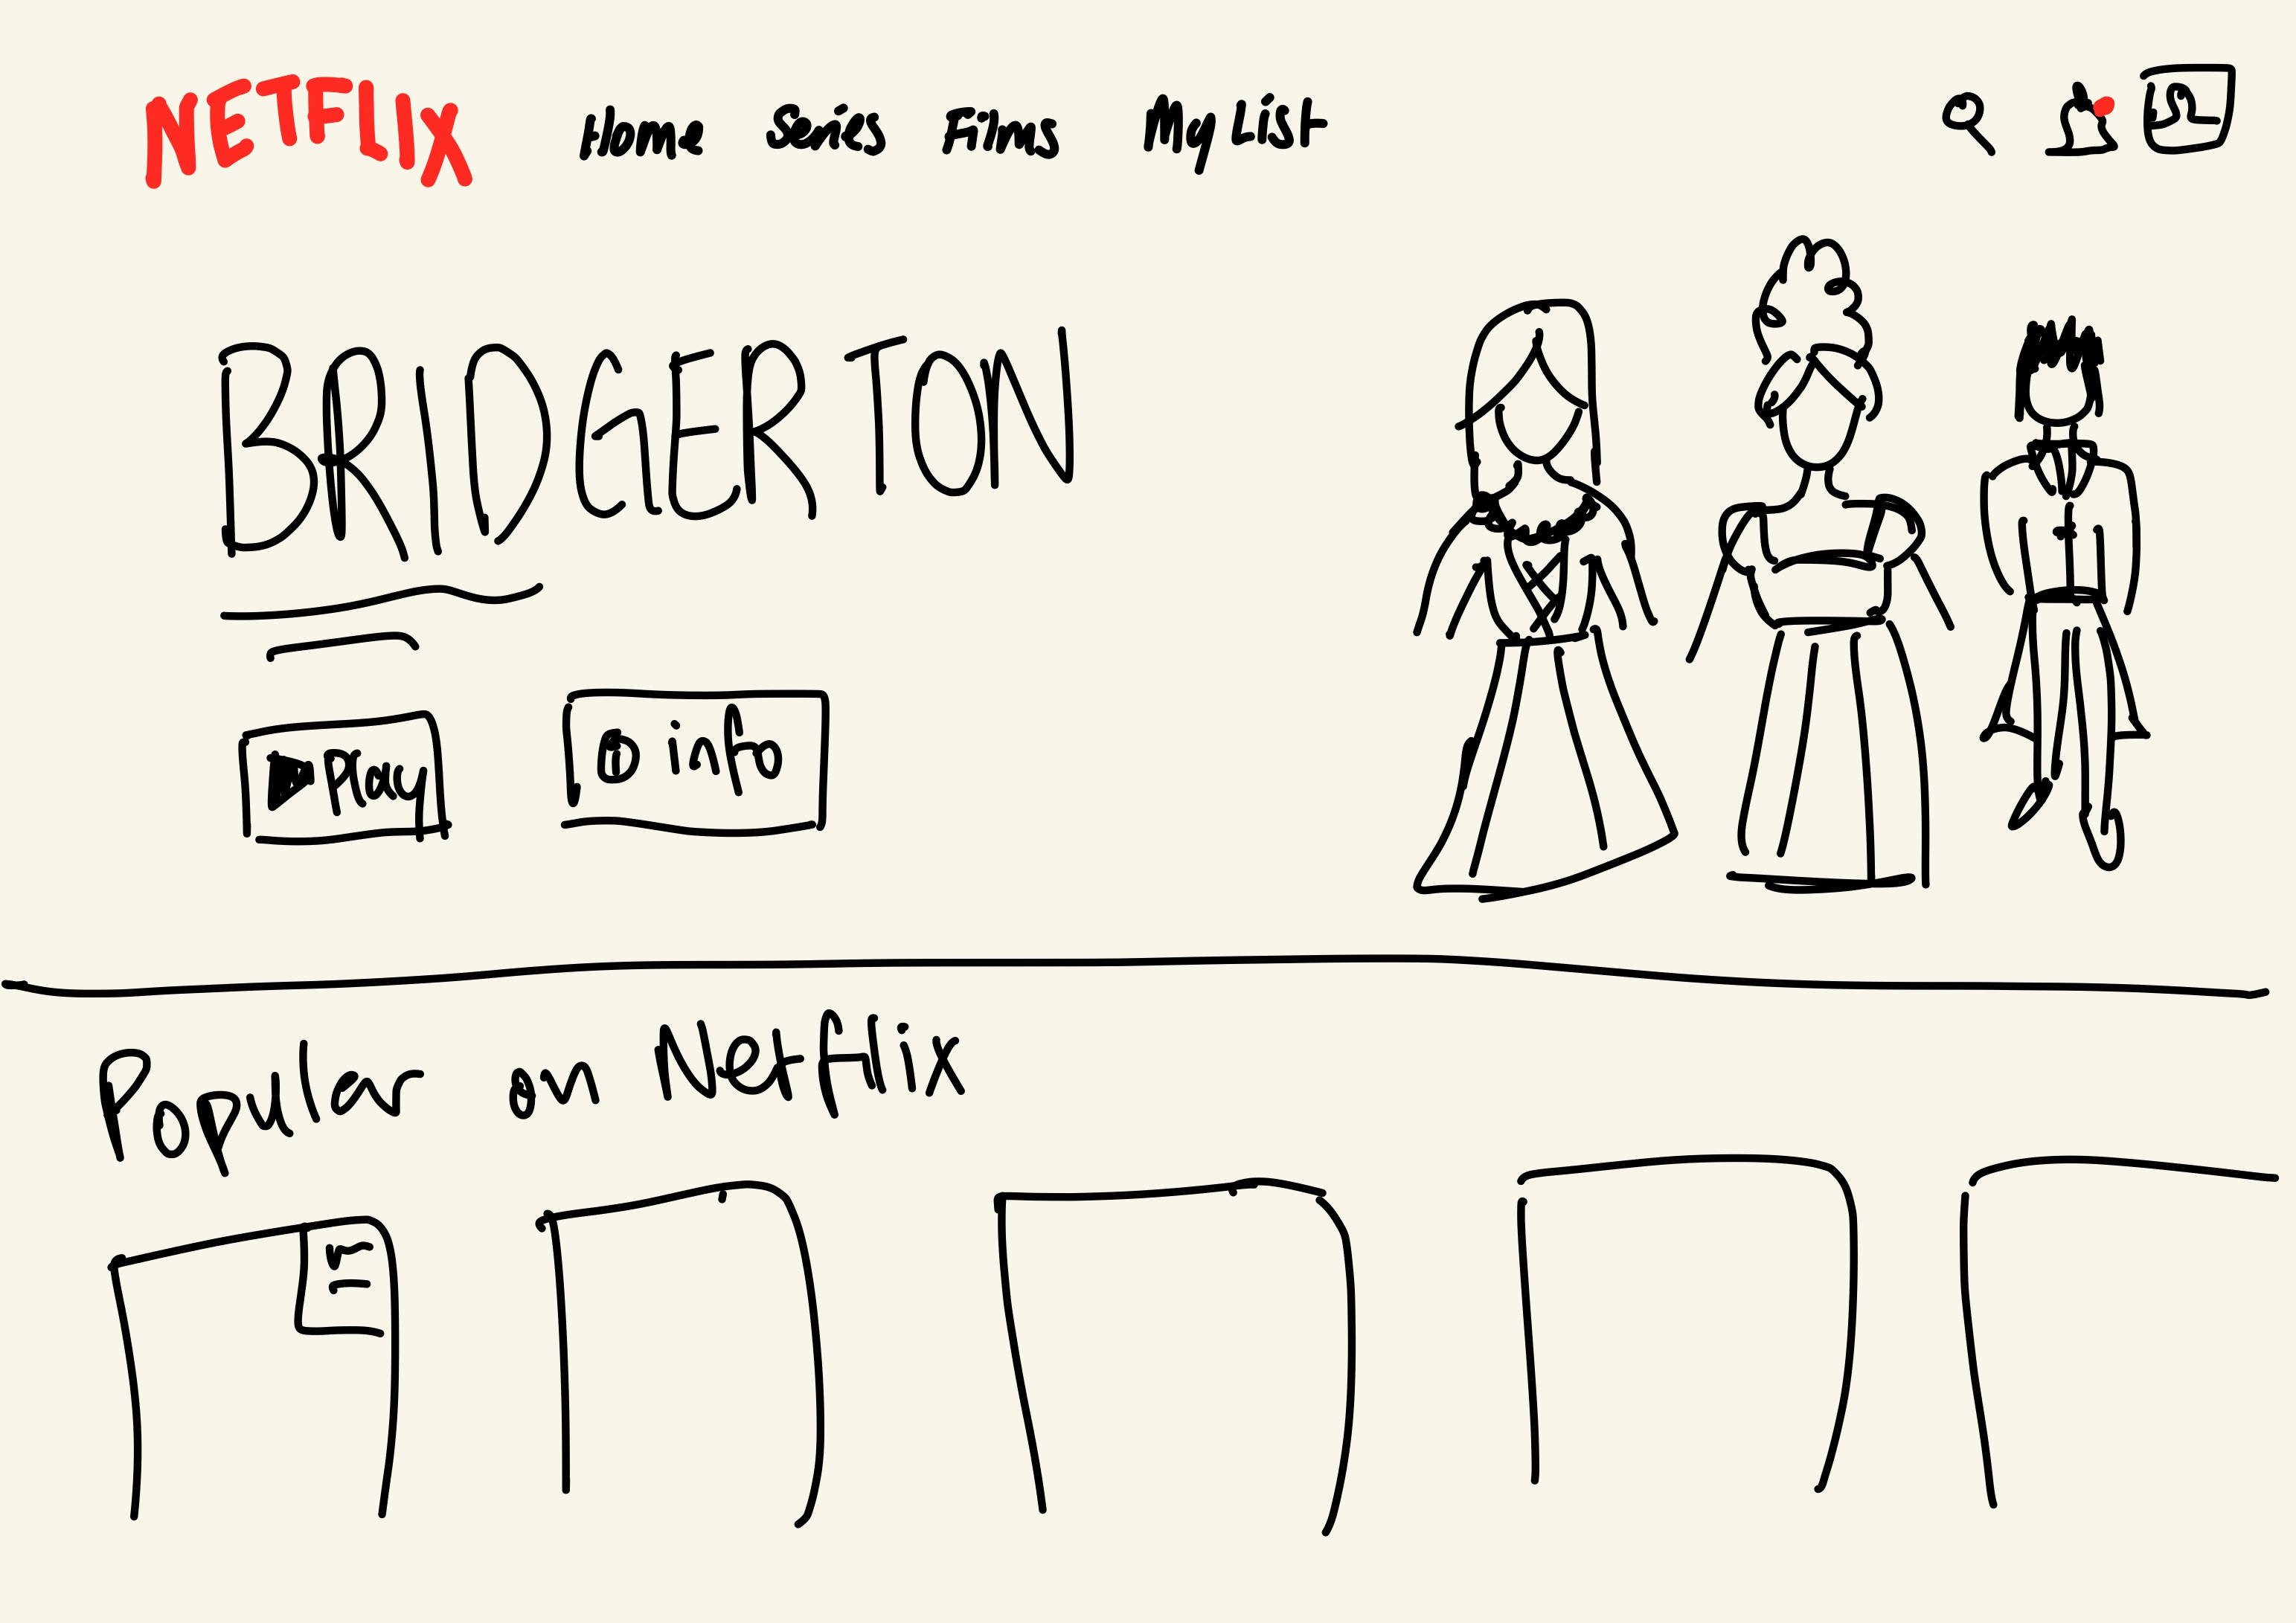 NETFLIX Home Series Films My List
BRIDGERTON
Play
i info
Popular on Netflix